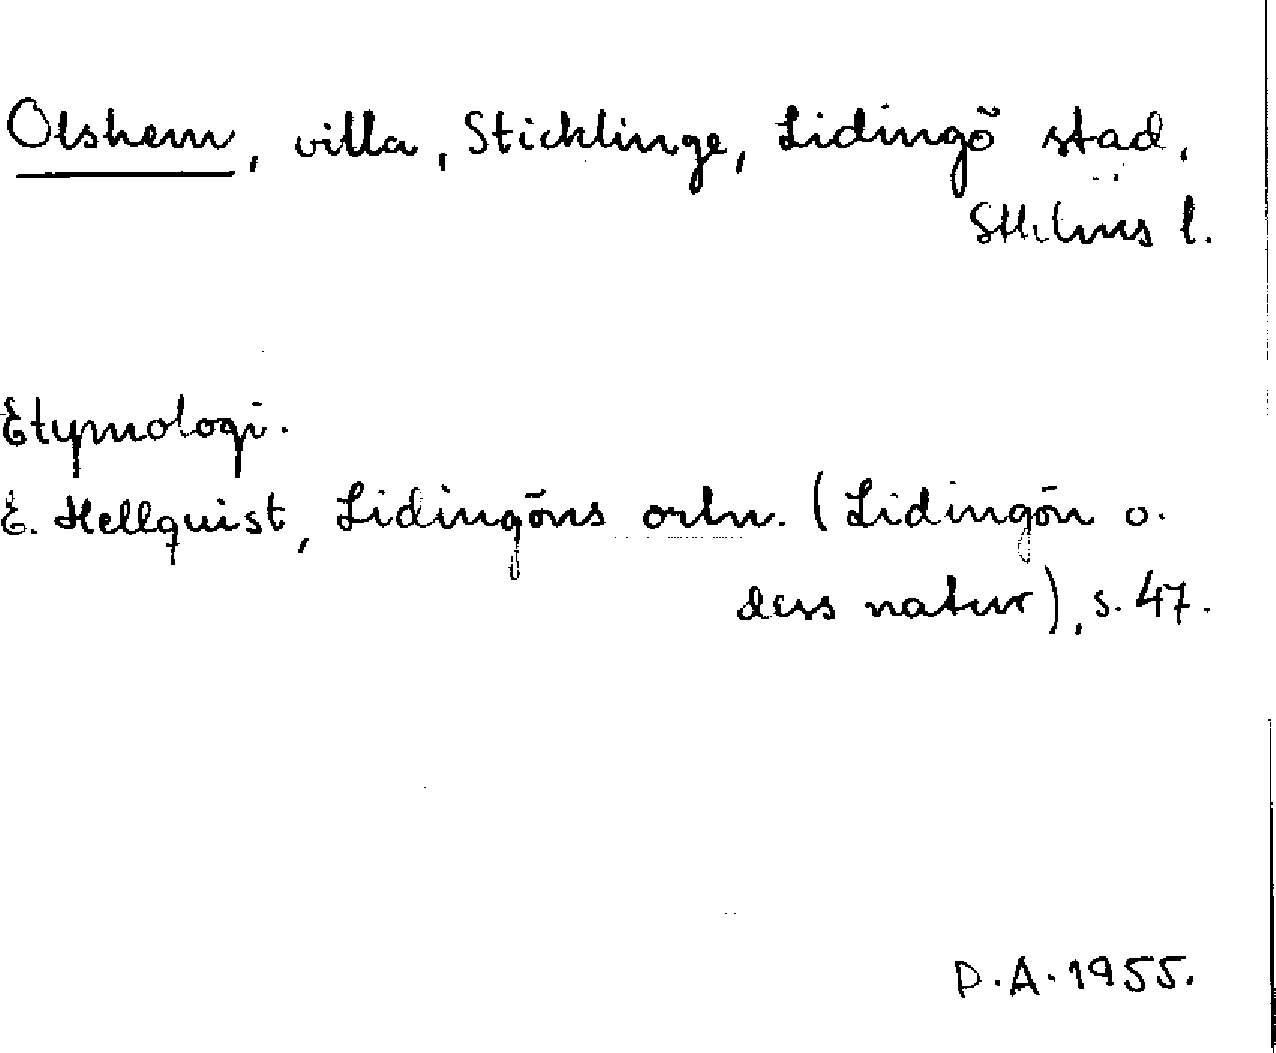 Olshem, villa, Sticklinge, Lidingö stad,
Sthlms l.
Etymologi.
E. Hellquist, Lidingöns ortn. (Lidingön o.
dess natur), s. 47.
P.A. 1955.